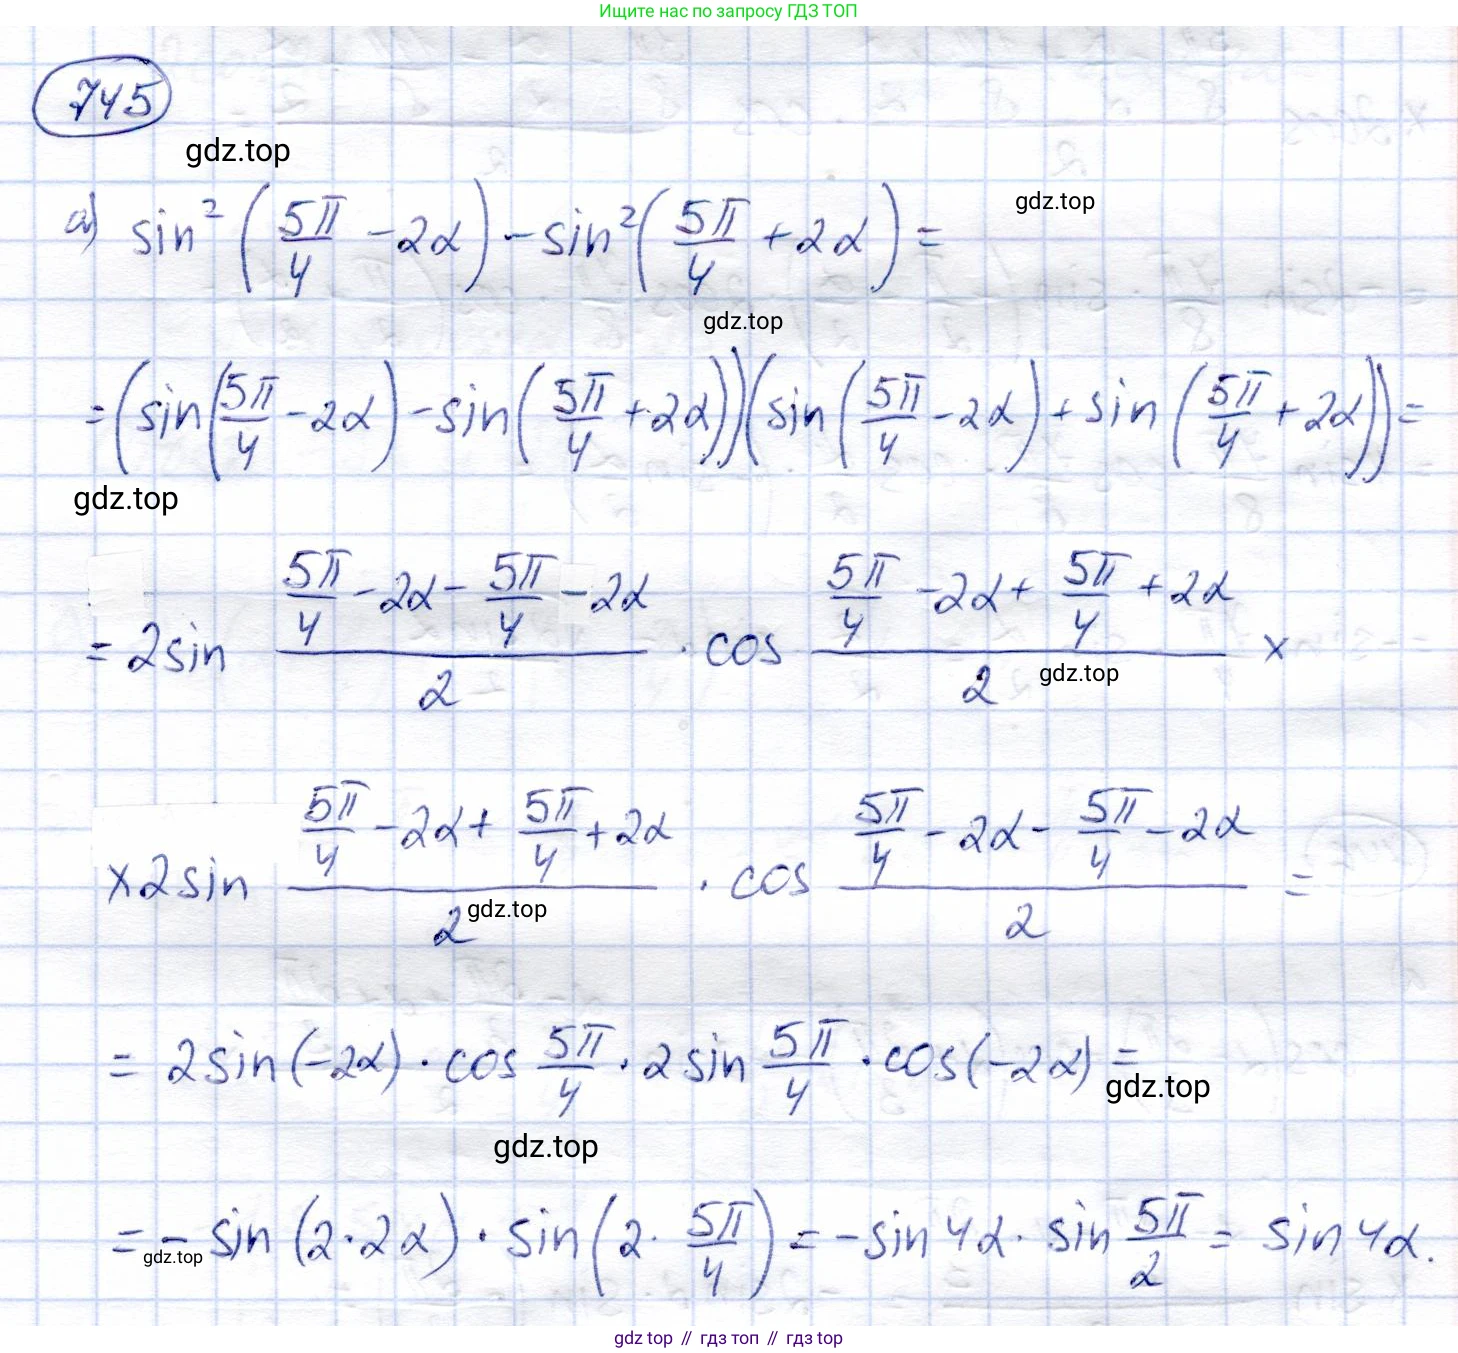 Ищите нас по запросу ГДЗ ТОП
745
gdz.top
а) sin² (5π/4 − 2α) − sin² (5π/4 + 2α) =
gdz.top
gdz.top
= (sin (5π/4 − 2α) − sin (5π/4 + 2α)) (sin (5π/4 − 2α) + sin (5π/4 + 2α)) =
gdz.top
= 2 sin (5π/4 − 2α − 5π/4 − 2α)/2 · cos (5π/4 − 2α + 5π/4 + 2α)/2 ×
gdz.top
× 2 sin (5π/4 − 2α + 5π/4 + 2α)/2 · cos (5π/4 − 2α − 5π/4 − 2α)/2 =
gdz.top
= 2 sin (−2α) · cos 5π/4 · 2 sin 5π/4 · cos (−2α) =
gdz.top
gdz.top
= − sin (2 · 2α) · sin (2 · 5π/4) = − sin 4α · sin 5π/2 = sin 4α.
gdz.top
gdz top // гдз топ // гдз top